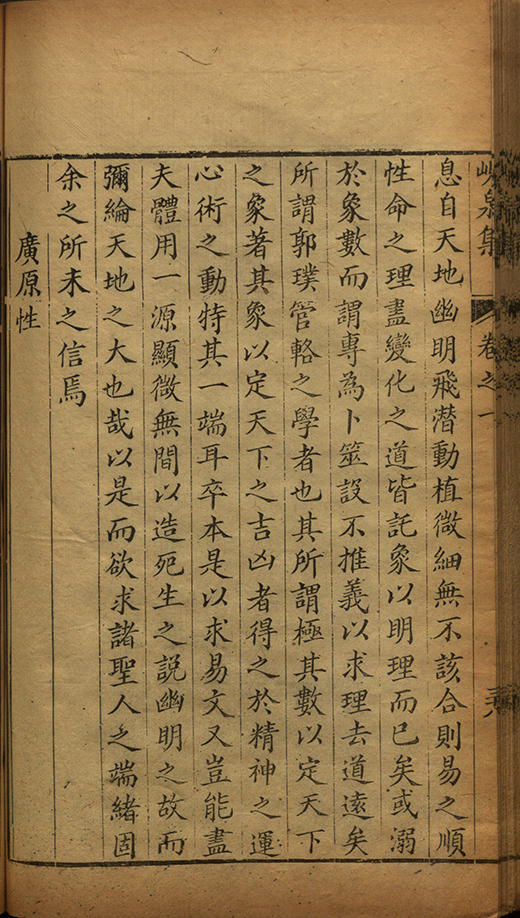 峴泉集 卷之一
息自天地幽明飛潛動植微細無不該合則易之順
性命之理盡變化之道皆託象以明理而已矣或溺
於象數而謂專為卜筮設不推義以求理去道遠矣
所謂郭璞管輅之學者也其所謂極其數以定天下
之象著其象以定天下之吉凶者得之於精神之運
心術之動特其一端耳卒本是以求易文又豈能盡
夫體用一源顯微無間以造死生之説幽明之故而
彌綸天地之大也哉以是而欲求諸聖人之端緒固
余之所未之信焉
廣原性